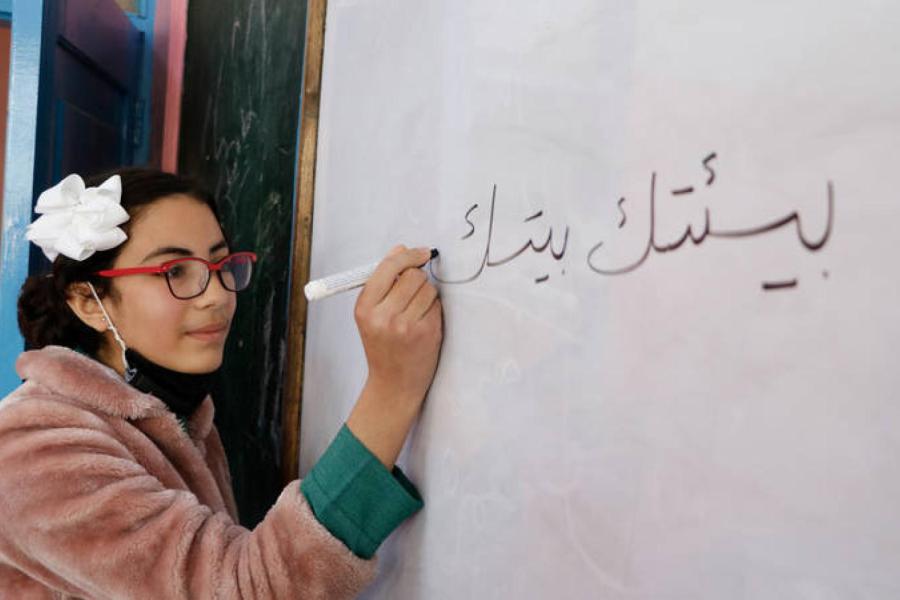 بيئتك بيتك